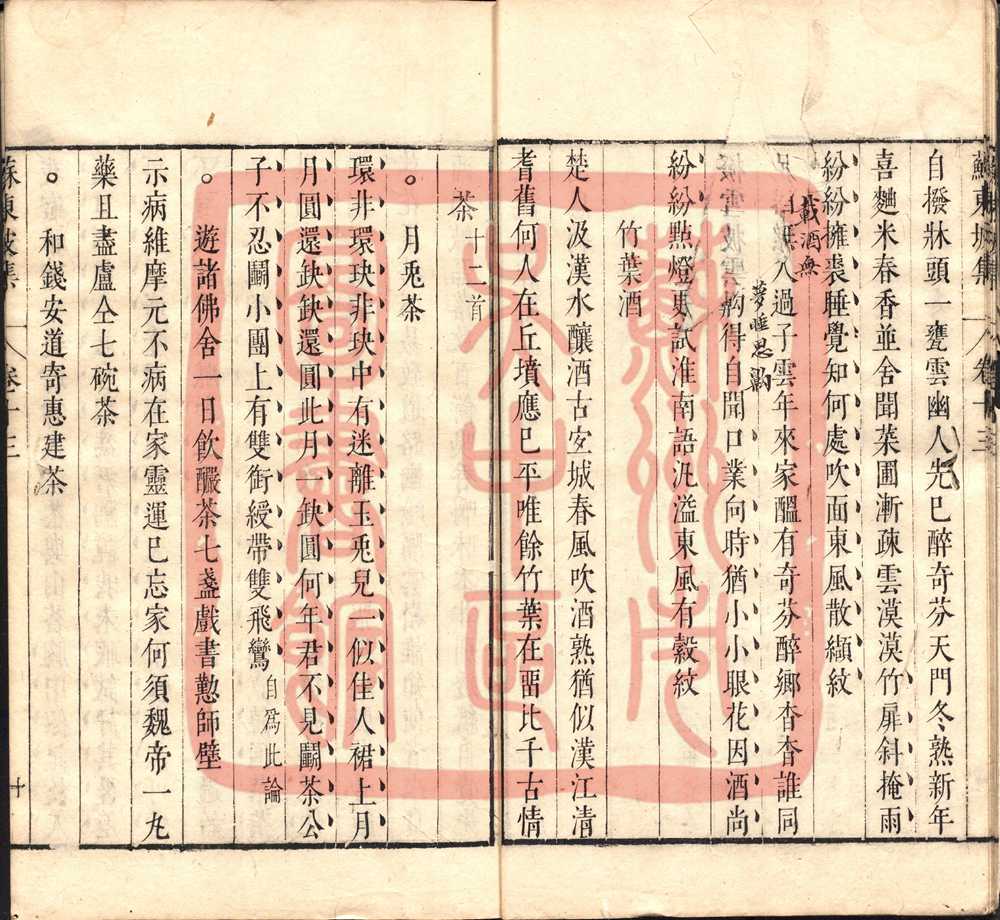 自撥牀頭一甕雲幽人先已醉奇芬天門冬熟新年
喜麯米春香並舍聞菜圃漸疎雲漠漠竹扉斜掩雨
紛紛擁裘睡覺知何處吹面東風散纈紋
載酒無人過子雲年來家醞有奇芬醉鄉杳杳誰同
夢睡思齁齁得自聞口業向時猶小小眼花因酒尚
紛紛點燈更試淮南語汎溢東風有縠紋
竹葉酒
楚人汲漢水釀酒古宜城春風吹酒熟猶似漢江清
耆舊何人在丘墳應已平唯餘竹葉在畱比千古情
茶十二首
月兎茶
環非環玦非玦中有迷離玉兎兒一似佳人裙上月
月圓還缺缺還圓此月一缺圓何年君不見鬭茶公
子不忍鬭小團上有雙銜綬帶雙飛鸞自爲此論
遊諸佛舍一日飲釅茶七盞戲書勤師壁
示病維摩元不病在家靈運已忘家何須魏帝一丸
藥且盡盧仝七碗茶
和錢安道寄惠建茶
蘇東坡集 卷十三 十